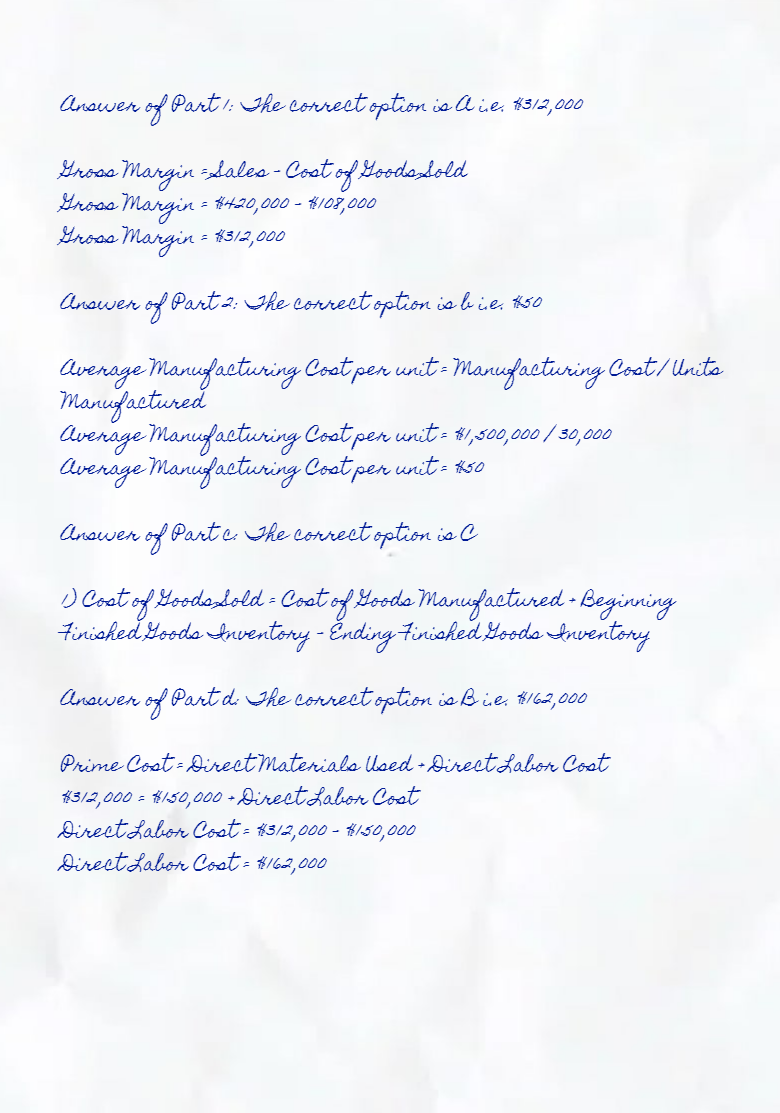 Answer of Part 1: The correct option is A i.e. $312,000
Gross Margin = Sales - Cost of Goods Sold
Gross Margin = $420,000 - $108,000
Gross Margin = $312,000
Answer of Part 2: The correct option is b i.e. $50
Average Manufacturing Cost per unit = Manufacturing Cost / Units
Manufactured
Average Manufacturing Cost per unit = $1,500,000 / 30,000
Average Manufacturing Cost per unit = $50
Answer of Part c: The correct option is C
1) Cost of Goods Sold = Cost of Goods Manufactured + Beginning
Finished Goods Inventory - Ending Finished Goods Inventory
Answer of Part d: The correct option is B i.e. $162,000
Prime Cost = Direct Materials Used + Direct Labor Cost
$312,000 = $150,000 + Direct Labor Cost
Direct Labor Cost = $312,000 - $150,000
Direct Labor Cost = $162,000